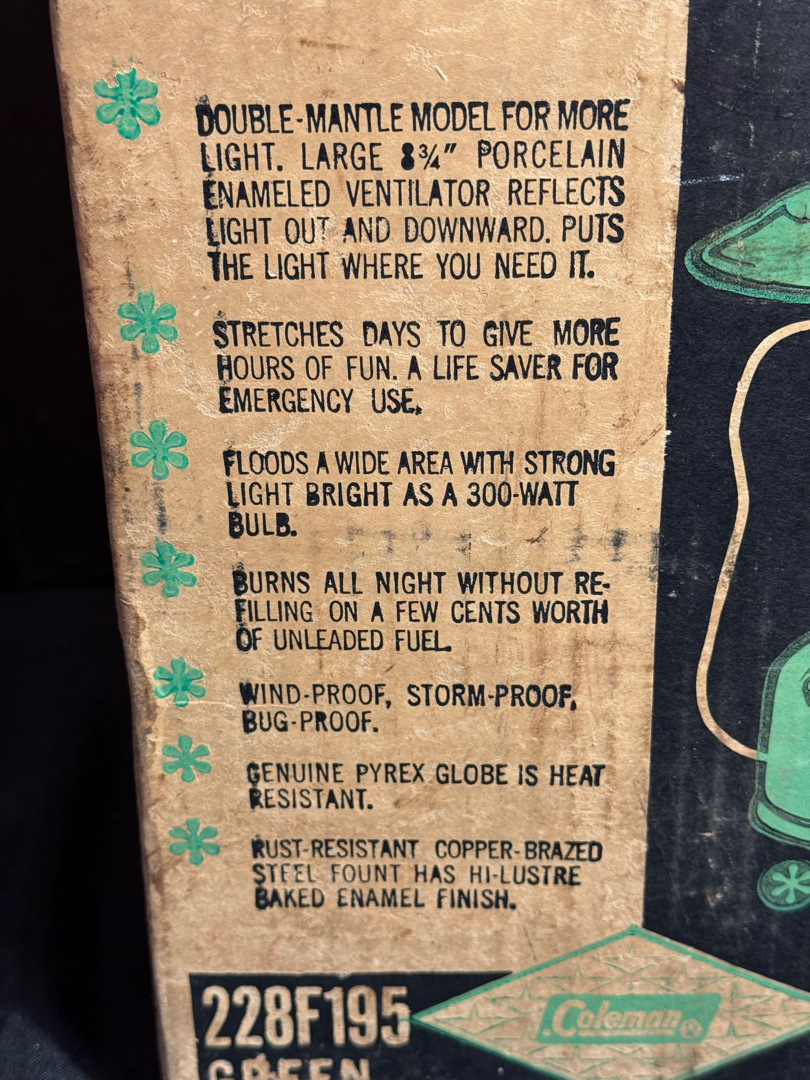 DOUBLE-MANTLE MODEL FOR MORE
LIGHT. LARGE 8¾" PORCELAIN
ENAMELED VENTILATOR REFLECTS
LIGHT OUT AND DOWNWARD. PUTS
THE LIGHT WHERE YOU NEED IT.
STRETCHES DAYS TO GIVE MORE
HOURS OF FUN. A LIFE SAVER FOR
EMERGENCY USE.
FLOODS A WIDE AREA WITH STRONG
LIGHT BRIGHT AS A 300-WATT
BULB.
BURNS ALL NIGHT WITHOUT RE-
FILLING ON A FEW CENTS WORTH
OF UNLEADED FUEL.
WIND-PROOF, STORM-PROOF,
BUG-PROOF.
GENUINE PYREX GLOBE IS HEAT
RESISTANT.
RUST-RESISTANT COPPER-BRAZED
STEEL FOUNT HAS HI-LUSTRE
BAKED ENAMEL FINISH.
228F195
GREEN
Coleman®